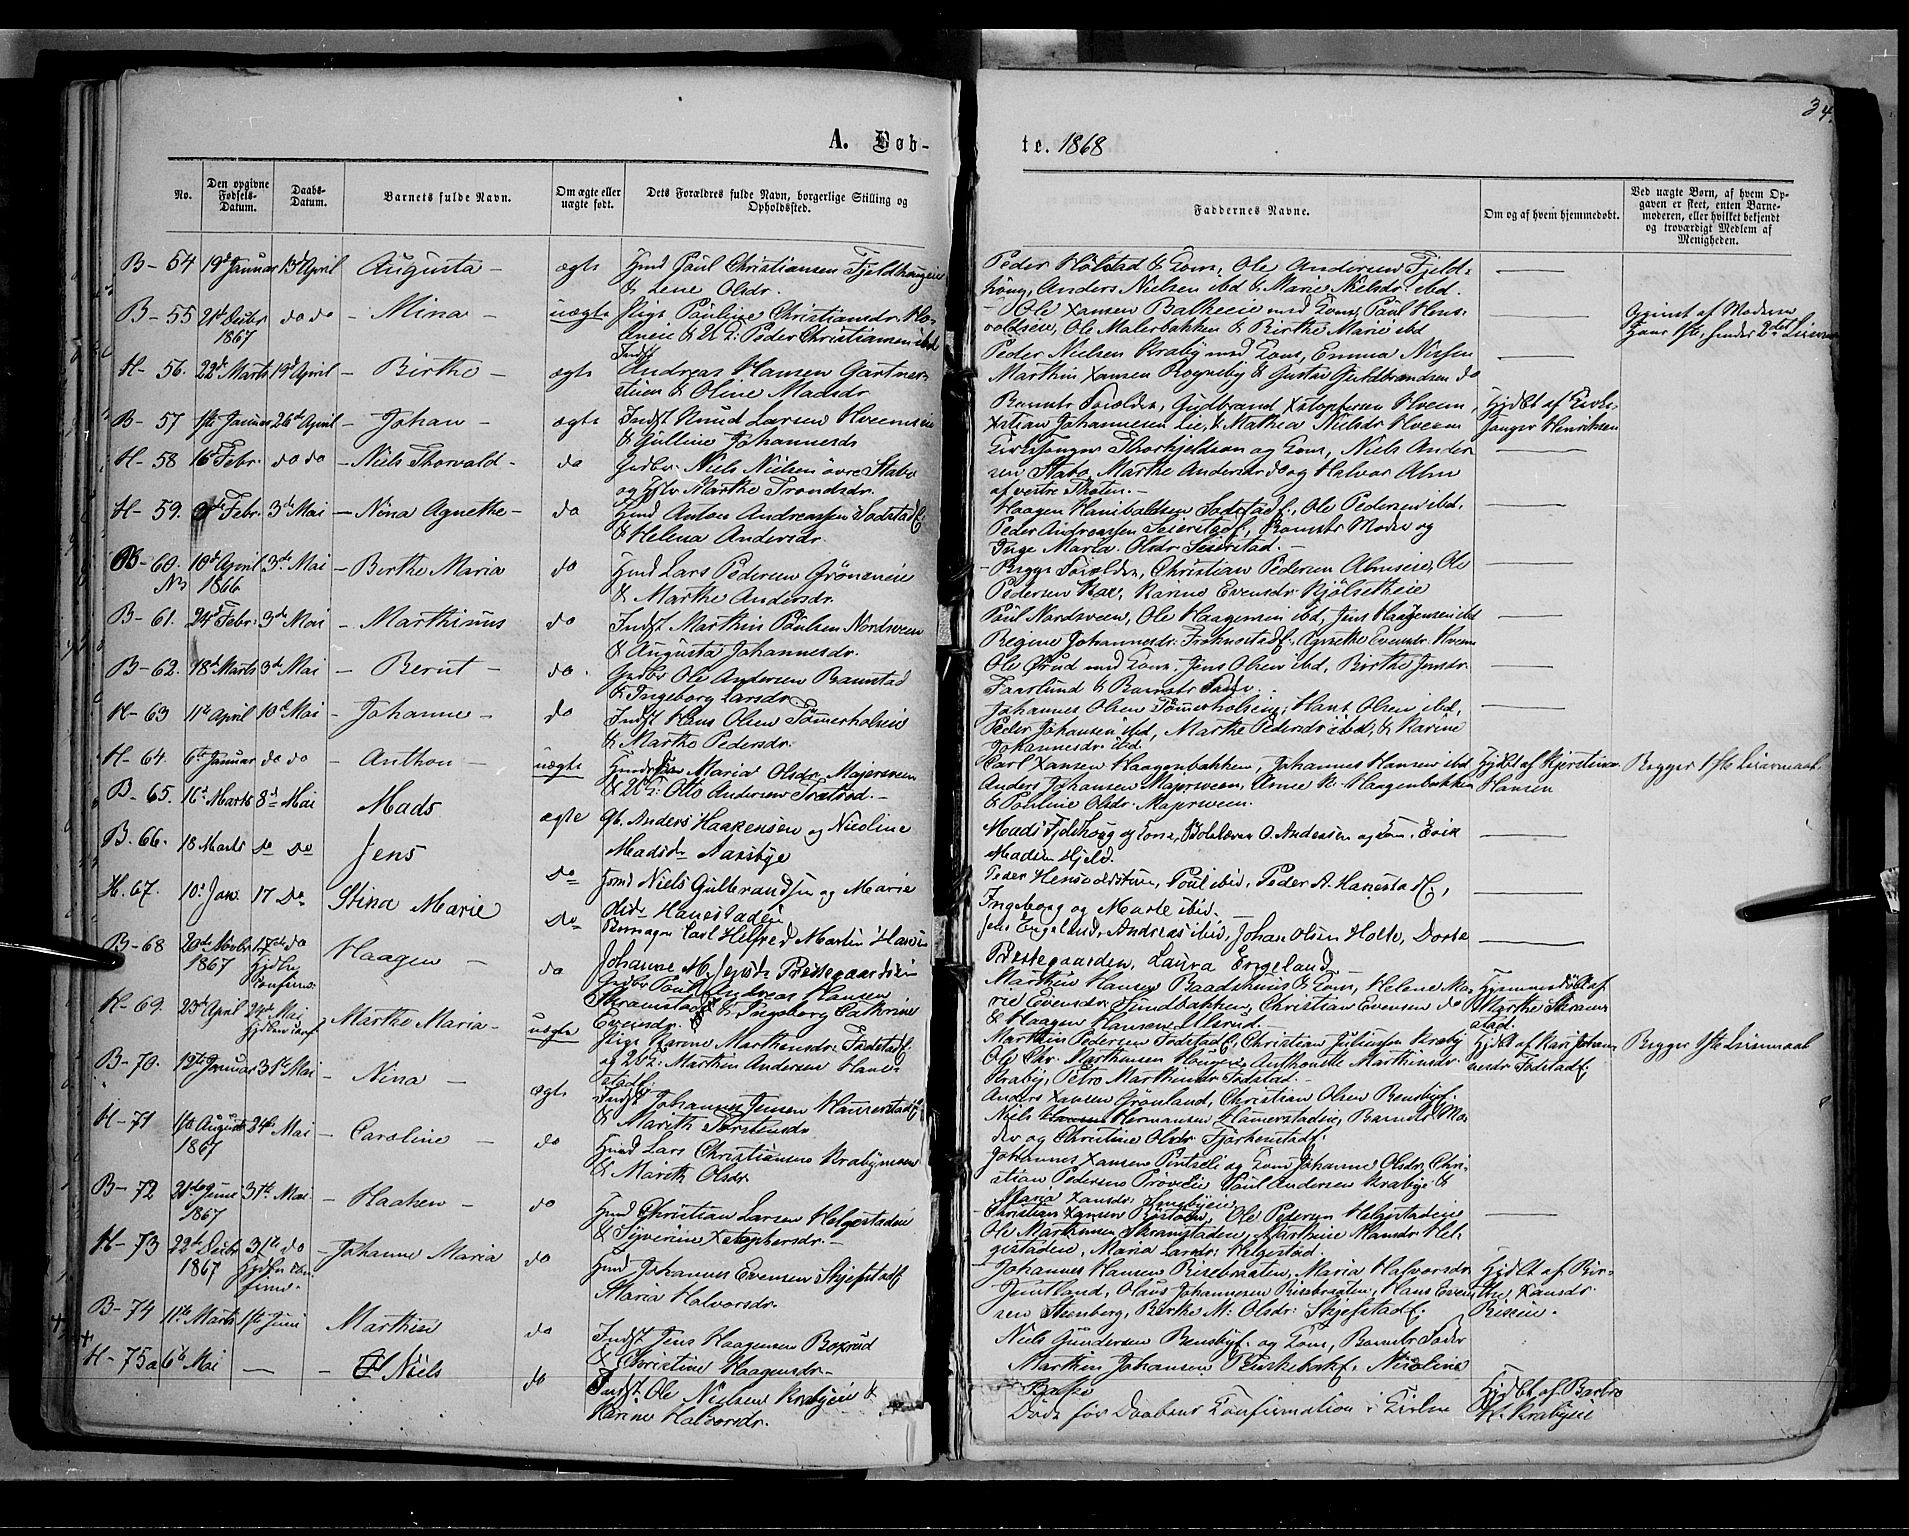 34.
A. Døb-
te. 1868
No.
Den opgivne Fødsels-Datum.
Daabs-Datum.
Barnets fulde Navn.
Om ægte eller uægte født.
Dets Forældres fulde Navn, borgerlige Stilling og Opholdssted.
Faddernes Navne.
Om og af hvem hjemmedøbt.
Ved uægte Børn, af hvem Opgaven er skeet, enten Barnemoderen, eller hvilket bekjendt og troværdigt Medlem af Menigheden.
B-54 19de Januar 13de April Augusta - ægte Hmd Paul Christiansen Fjeldhaugeie
& Lene Olsdr.
Peder Holstad & Kone, Ole Andersen Fjeld-
houg, Anders Nielsen ibd & Marie Nielsdr ibd.
B-55 21de Decbr do do - Mina - uægte Pige Pauline Christiansdr
1867 & U.F: Peder Christiansen ibd
- Ole Hansen Balkeeie med Kone, Paul Hens-
voldseie, Ole Malerbakken & Birthe Marie ibd
Opgivet af Moderen
H-56. 22de Marts 19de April - Birthe - ægte Indst Andreas Hansen Gartner-
stuen & Oline Madsdr.
Peder Nielsen Kraby med Kone, Emma Nilsen
Marthin Hansen Rogneby & Gustav Guldbrandsen do
B-57 1ste Januar 26de April - Johan - ægte Indst Knud Larsen Hveemseie
& Gulline Johannesdr
Barnets Forældre, Gudbrand Xstophersen Hveem,
Xstian Johannesen Lie, & Mathea Nielsdr Hveem
Hjdbt af Kirke-
sanger Henriksen
H-58 16de Febr. do do - Niels Thorvald - do Grdbr Niels Nielsen øvre Stabo
og Hstr Marthe Trondsdr.
Kirkesanger Thorkjeldsen og Kone, Niels Ander-
sen Stabo, Marthe Andersdr do og Halvor Alm
af vestre Thoten. -
H-59. Febr. 3de Mai - Nina Agnethe - do Hmd Anton Andreassen Sodstad
& Helena Andersdr.
Haagen Haniboldsen Sodstad, Ole Pedersen ibd,
Peder Andreassen Seierstad, Barnets Moder og
Inge Maria Olsdr Seierstad. -
B-60. 10de April 3de Mai - Birthe Maria do Hmd Lars Pedersen Grønneeie
1866 & Marthe Andersdr.
- Begge Forældre, Christian Pedersen Alm eie, Ole
Pedersen Bae, Karine Evensdr Kjølsetheie
B-61. 24de Febr. 3de Mai - Marthinus do Indst Marthin Paulsen Nordsveen
& Augusta Johannesdr.
Paul Nordsveen, Ole Haagensen ibd, Jens Haagensen ibd
Regine Johannesdr, Agnethe Evensdr Hveem
B-62. 18de Marts 3de Mai - Bernt - do. Grdbr Ole Andersen Banstad
& Ingeborg Larsdr
Ole Ørud med Kone, Jens Olsen ibd, Birthe Jensdr
Faarlund & Barnets Fader.
H-63 11te April 10de Mai - Johanne - do Indst Hans Olsen Tømerholseie
& Marthe Pedersdr.
Johannes Olsen Tømerholseie, Hans Olsen ibd,
Peder Johansen ibd, Marthe Pedersdr ibd, & Karine
Johannesdr ibd.
H-64. 6te Januar do do - Anthon - uægte Maria Olsdr Majersveen
& U.F: Otto Andersen
Carl Hansen Haagenbakken, Johannes Hansen ibd
Anders Johansen Majersveen, Anne K. Haagenbakken
& Pauline Olsdr. Majersveen.
Hjdbt af Kjerstine
Hansen
Begges 1ste Leiermaal.
B-65. 16de Marts 8de Mai Mads ægte Gb. Anders Haakensen og Nicoline
Madsdr Aarsbye
Mads Fjeldhoug og Kone, O. Andersen og Kone, Erik
Madsen Hjeld.
B. 66. 18 Marts do do Jens do Hmd Niels Gulbrandsen og Marie
Olsdr Hanestadeie
Peder Hensvoldstuen, Poul ibid, Peder A. Hanestad,
Ingeborg og Marte ibid. -
H. 67. 10de Jan. 17 do Stina Marie do Carl Helfred Martin Hansen
Johanne M. Jensdr Prestegaardseie
Jens Engeland, Andreas ibid, Johan Olsen Holte, Dorte
Prestegaarden, Laura Engeland
B-68 20de Novbr 17de do Haagen - do Gdbr Paul Andreas Hansen
1867 Hjdbt confirm. Skramstad & Ingeborg Cathrine
Evensdr.
Marthin Hansen Baadshuus & Kone, Helene Ma-
rie Evensdr Sundbakken, Christian Evensen do
& Haagen Hansen Ullerud.
Hjemmedøbt af
Marthe Skram-
stad.
H-69. 23de April 24de Mai Marthe Maria - uægte Pige Karine Marthinsdr Fodstad
og U.F: Marthin Andersen Hane-
stad.
Marthin Pedersen Fodstad, Christian Juliussen Kraby
Ole Chr. Marthinsen Houg, Anthonette Marthinsdr
Kraby, Petro Marthinsdr Fodstad. -
Hjdbt af Kari Johan-
nesdr Fodstad
Begges 1ste Leiermaal
B-70. 12te Januar 31te Mai - Nina - ægte Indst Johannes Jensen Hammerstad
& Marith Torstensdr
Anders Hansen Grønland, Christian Olsen Bensby,
Niels Hermansen Hamerstadeie, Barnets Mo-
der og Christine Olsdr Bjørkenstad.
H-71 1ste August 24de Mai - Caroline - do Hmd Lars Christiansen Krabymoen
1867 & Marith Olsdr.
Johannes Hansen Pintseli og Kone Johanne Olsdr, Chri-
stian Pedersen Prøveeie Paul Andersen Krabye &
Maria Hansdr
B-72 21de Juni 31te Mai - Haaken - do Hmd Christian Larsen Helgestadeie
1867 & Syverine Xstophersdr. -
Christian Hansen, Ole Pedersen Helgestadeie
Ole Marthinsen Skramstadeie, Marthine Hansdr Hel-
gestadeie, Maria Larsdr Helgestad.
H-73 22de Decbr 31te do - Johanne Maria do Hmd Johannes Evensen Skjefstad
1867 Maria Halvorsdr.
Johannes Hansen Risebraaten, Maria Halvorsdr
Juntland, Olaus Johannesen Risebraaten, Hans Even-
sen Stenberg, Birthe M. Olsdr. Skjefstad.
Hjdbt af Bir-
the Hansdr.
B-74 11te Marts 1ste Juni Marthin do Indst Jens Haagensen Boxrud
& Christine Haagensdr -
Niels Gundersen Bensby og Kone, Barnets Fader
Marthin Johansen, Nicoline
Balke
H-75a 6te Mai - - Niels do Indst Ole Nielsen Krabyeie &
Karine Halvorsdr.
Døde før Daabens Confirmation i Kirken
Hjdbt af Barbro
H. Krabyeie